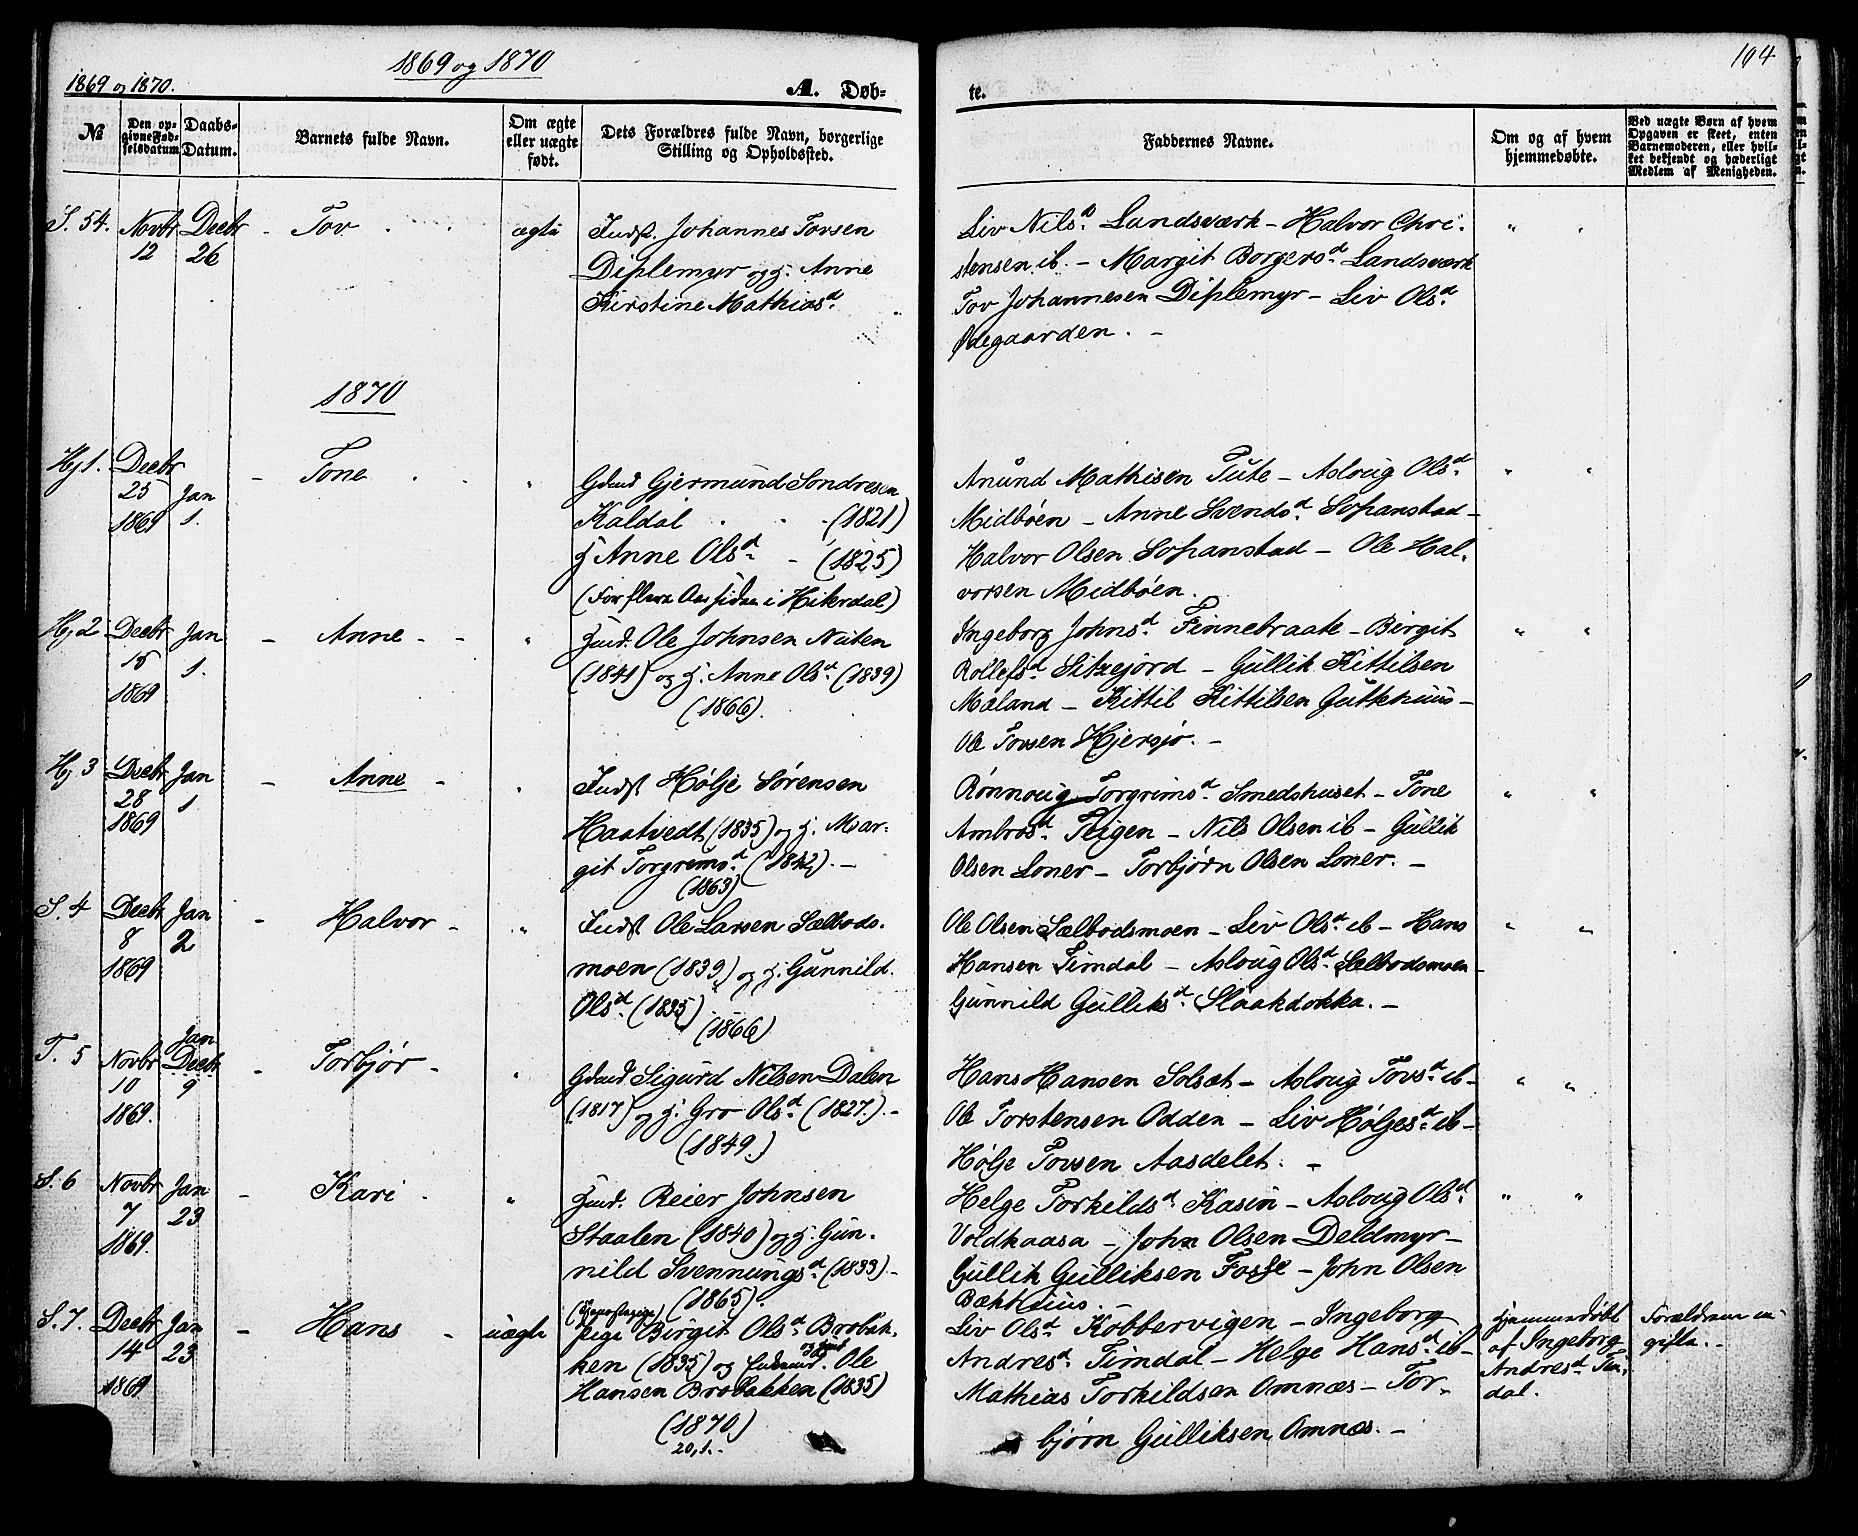 1869 og 1870
104
1869 og 1870.
A. Døb-
te.
№
Den op-
givne Fød-
selsdatum
Daabs-
Datum.
Barnets fulde Navn.
Om ægte
eller uægte
født.
Dets Forældres fulde Navn, borgerlige
Stilling og Opholdssted.
Faddernes Navne.
Om og af hvem
hjemmedøbte.
Ved uægte Børn af hvem
Opgaven er skeet, enten
Barnemoderen, eller hvil-
ket bekjendt og hæderligt
Medlem af Menigheden.
S. 54. Novbr Decbr - Tov ægte Indst. Johannes Tovsen
12 26 Diplemyr og h. Anne
Kirstine Mathiasd.
Liv Nilsd. Landsværk - Halvor Chri-
stensen ib. - Margit Borgersd. Landsværk
Tov Johannesen Diplemyr - Liv Olsd.
Ødegaarden. -
1870
Hj 1. Decbr - Tone " Gdmd Gjermund Sondresen
25 Jan Kaldal (1821)
1869 1. h Anne Olsd. - (1825)
i Hiterdal)
Anund Mathisen Tute - Asloug Olsd.
Midbøen - Anne Svendsd. Sofanstad -
Halvor Olsen Sofanstad - Ole Hal-
vorsen Midbøen.
Hj 2 Decbr Jan - Anne - " Hmd. Ole Johnsen Nuten
15 1. (1841) og h. Anne Olsd. (1839)
1869 (1866).
Ingeborg Johnsd. Finnebraate - Birgit
Rollefsd. Sitzejord - Gullik Kittilsen
Mæland - Kittil Kittilsen Gutkhuus -
Ole Tovsen Hjersjø. -
Hj 3 Decbr Jan - Anne - " Indst Hølje Sørensen
28 1 Haatvedt (1835) og h. Mar-
1869 git Torgrimsd. (1842). -
(1863)
Rønnoug Torgrimsd. Smedshuset - Tone
Ambrosd. Teigen - Nils Olsen ib - Gullik
Olsen Loner - Torbjørn Olsen Loner. -
S. 4 Decbr Jan - Halvor - " Indst Ole Larsen Sælbods-
8 2 moen (1839) og h. Gunnild
1869 Olsd. (1835)
(1866)
Ole Olsen Sælbodsmoen - Liv Olsd. ib - Hans
Hansen Timdal - Asloug Olsd. Sælbodsmoen -
Gunnild Gulliksd. Slaakdokka. -
T. 5 Novbr Jan Decbr - Torbjør - " Gdmd Sigurd Nilsen Dalen
10 9 (1817) og h. Gro Olsd. (1827.) -
1869. (1849.)
Hans Hansen Solsæt - Asloug Tovsd. ib -
Ole Torstensen Odden - Liv Høljesd. ib -
Hølje Tovsen Aasdelet. -
S. 6 Novbr Jan - Kari - " Hmd. Reier Johnsen
7 23 Staalen (1840) og h. Gun-
1869. nild Svennungsd. (1833) -
(1865).
Helge Torkildsd. Kasin - Asloug Olsd.
Voldkaasa - John Olsen Deldmyr -
Gullik Gulliksen Fosse - John Olsen
Bækkhuus. -
S. 7. Decbr Jan - Hans - uægte Pige Birgit Olsd. Brobak-
14 23 ken (1835) og Ole
1869 Hansen Brobakken (1835)
(1870)
20,1. -
Liv Olsd. Kobbervigen - Ingeborg
Andresd. Timdal - Helge Hansd. ib -
Mathias Torkildsen Omnæs - Tor-
bjørn Gulliksen Omnæs. -
Hjemmedøbt
af Ingeborg
Andresd. Tim-
dal.
Forældrene u-
gifte. -